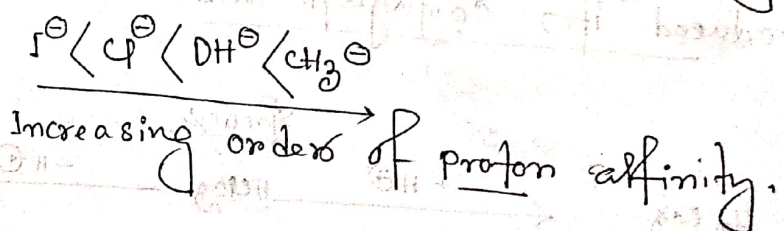 I⊖ < Cl⊖ < OH⊖ < CH3⊖
Increasing order of proton affinity.